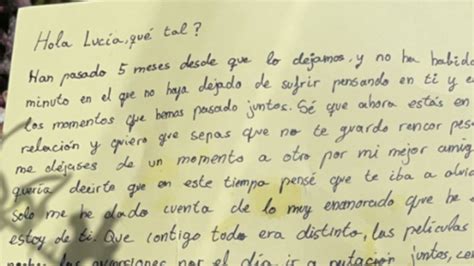 Hola Lucía, qué tal?
Han pasado 5 meses desde que lo dejamos, y no ha habido
minuto en el que no haya dejado de sufrir pensando en ti y e
los momentos que hemos pasado juntos. Sé que ahora estás en
relación y quiero que sepas que no te guardo rencor pes
me dejases de un momento a otro por mi mejor amig
quería decirte que en este tiempo pensé que te iba a olvid
solo me he dado cuenta de lo muy enamorado que he
estoy de ti. Que contigo todo era distinto, las películas
noche, las excursiones por el día, ir a natación juntos, ce